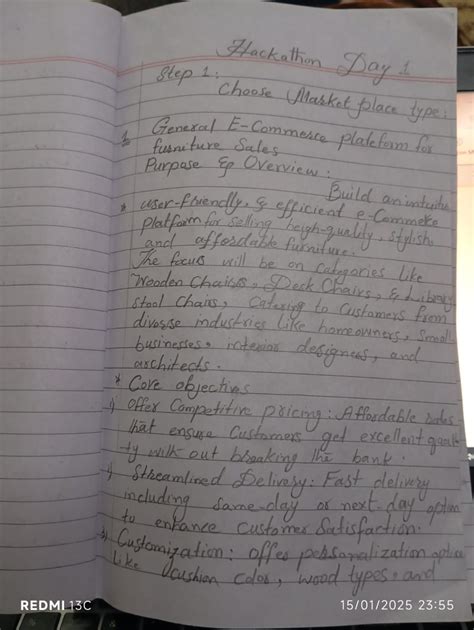 Hackathon Day 1
Step 1:
Choose Market place type:
General E-Commerce plateform for
furniture Sales
Purpose & Overview:
Build an intuitive
* user-friendly, & efficient e-Commerce
Platform for selling heigh-quality, stylish
and affordable furniture.
The focus will be on categories like
Wooden Chairs, Desk Chairs, &
Stool Chairs, Catering to Customers from
diverse industries like homeowners, Small
businesses, interior designers, and
architects.
* Core objectives
1) Offer Competitive pricing: Affordable rates
that ensure Customers get excellent quali
ty with out breaking the bank.
2) Streamlined Delivery: Fast delivery
including Same-day or next-day option
to enhance Customer Satisfaction.
3) Customization: offer personalization option
like cushion color, wood types, and
REDMI 13C
15/01/2025 23:55